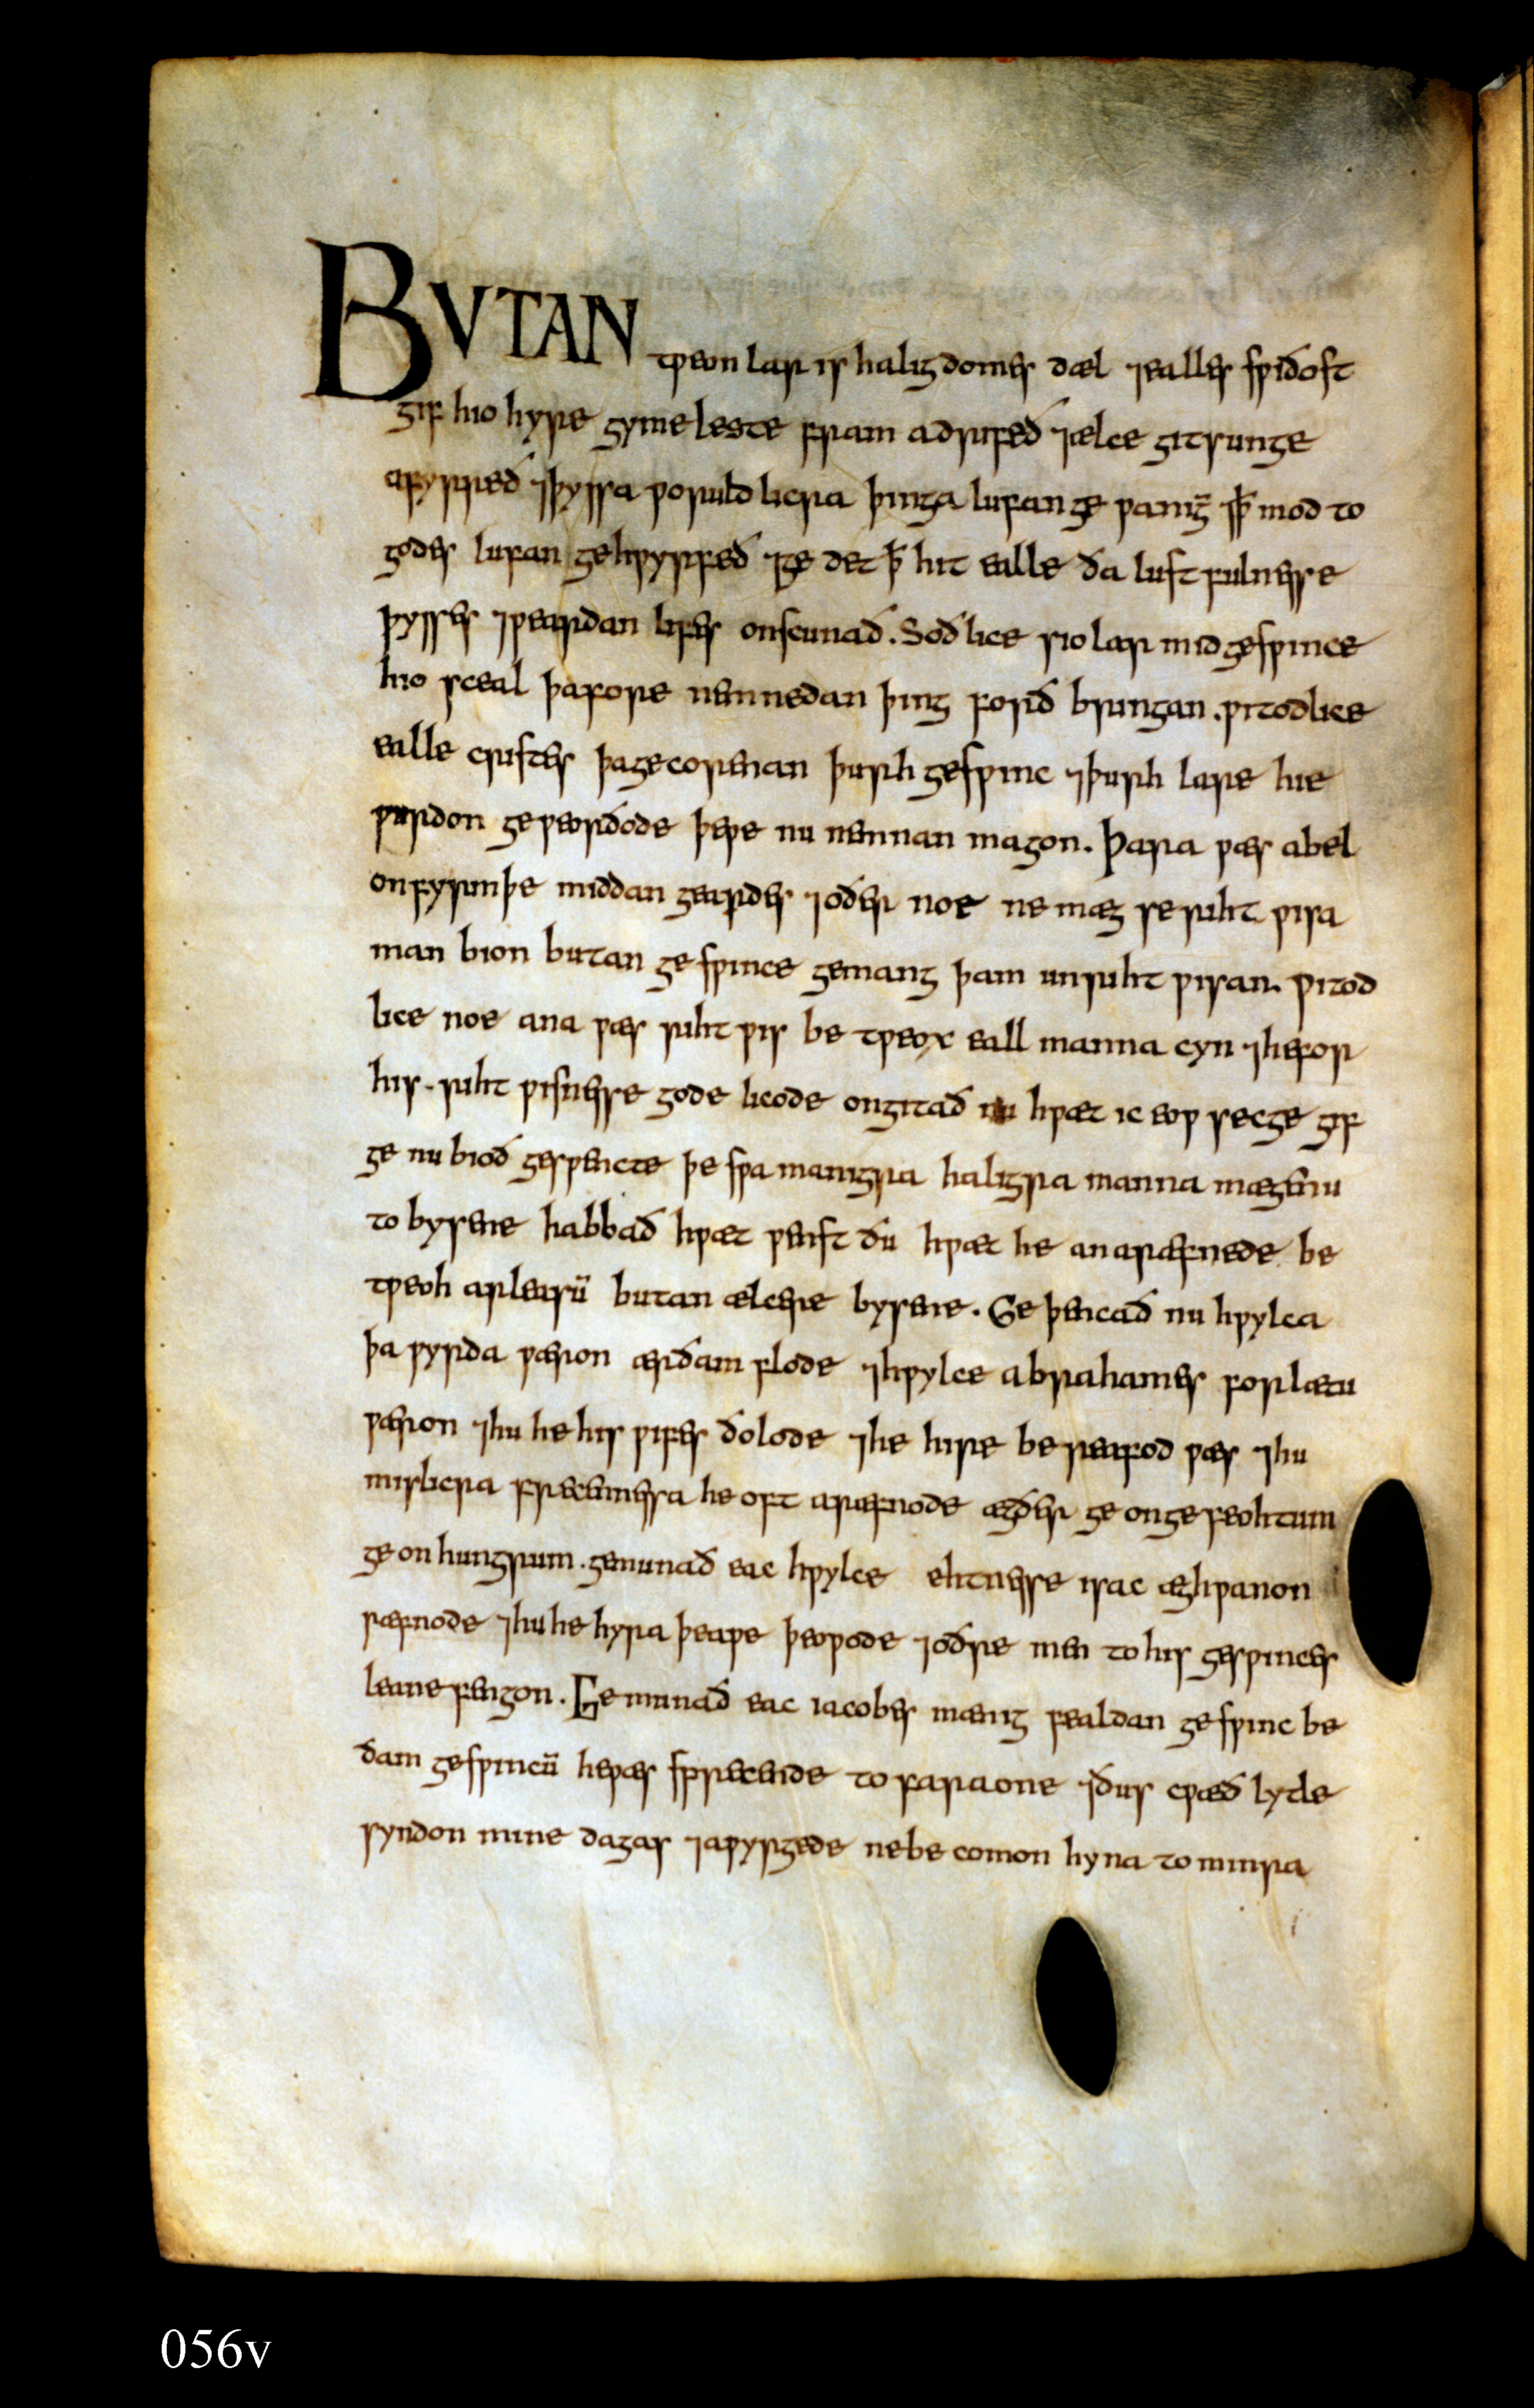 BVTAN tƿeon lar is haligdomes dæl ⁊ealles sƿiðost
gif hio hyre gymeleste fram adrifeð ⁊ælce gitsunge
afyrreð ⁊þyssa ƿoruldlicra þinga lufan geƿanig̅ ⁊ꝥ mod to
godes lufan gehƿyrfeð ⁊ge det ꝥ hit ealle ða lustfulnesse
þysses ⁊ƿeardan lifes onscunað. Soðlice sio lær mid gesƿince
hio sceal þa forenemnedan þing forð bringan. ƿitodlice
ealle cristes þa gecorenan þurh gesƿinc ⁊þurh lare hie
ƿurdon geƿeorðode þe ƿe nu nemnan magon. Þara ƿæs abel
on frymþe middangeardes ⁊oðer noe ne mæg se riht ƿisa
man bion butan gesƿince gemang þam unriht ƿisan. ƿitod
lice noe ana ƿæs riht ƿis be tƿeox eall manna cyn ⁊he for
his riht ƿisnesse gode licode ongitað nu hƿæt ic eoƿ secge gif
ge nu bioð gesƿencte þe sƿa manigra haligra manna mægenu
to bysene habbað hƿæt ƿenst ðu hƿæt he ana ræfnede be
tƿeoh arleasū butan ælcere bysene. Geþencað nu hƿylca
þa ƿyrda ƿæron ær ðam flode ⁊hƿylce abrahames forlætu
ƿæron ⁊hu he his ƿifes ðolode ⁊he hire bereafod ƿæs ⁊hu
mislicra frecennessa he oft aræfnode ægðer ge on gefeohtum
ge on hungrum. gemunað eac hƿylce ehtnesse isac æghƿanon
ræfnode ⁊hu he hyra þeaƿe þeoƿode ⁊oðre men to his gesƿinces
leane fengon. Gemunað eac iacobes mænig fealdan gesƿinc be
ðam gesƿincū he ƿæs sprecende to faraone ⁊ðus cƿæð lytle
syndon mine dagas ⁊aƿyrgede ne becomon hy na to minra
056v